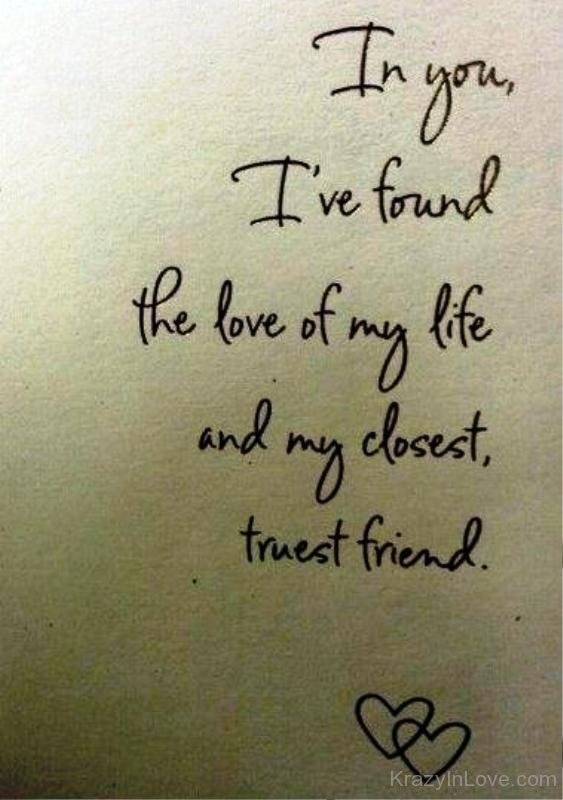 In you,
I've found
the love of my life
and my closest,
truest friend.
KrazyInLove.com